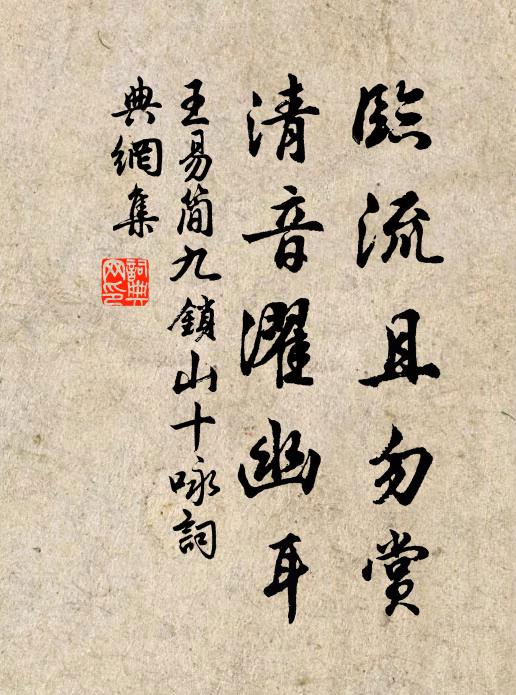 臨流且勿賞
清音濯幽耳
王易简九鎖山十咏詞
典網集
詞典網印